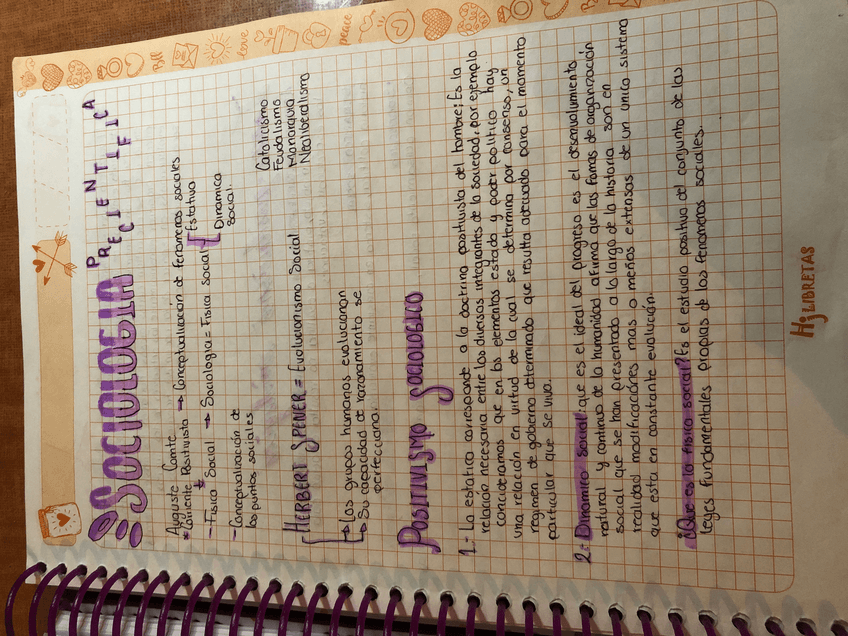 SOCIOLOGIA PRECIENTIFICA
Auguste Comte
* Corriente Positivista → Conceptualización de fenomenos sociales
- Fisica Social → Sociologia = Fisica social { Estativa
Dinamica
social.
- Conceptualización de
los puntos sociales
Catolicismo
Feudalismo
Monarquia
Neoliberalismo
HERBERT SPENER = Evolucionismo Social
→ Los grupos humanos evolucionan
→ Su capacidad de razonamiento se
perfecciona.
POSITIVISMO SOCIOLOGICO
1.- La estatica corresponde a la doctrina positivista del hombre; Es la
relación necesaria entre los diversos integrantes de la sociedad, por ejemplo
concideramos que en los elementos estado y poder politico hay
una relación en virtud de la cual se determina por consenso, un
regimen de gobierno determinado que resulta adecuado para el momento
particular que se viva.
2.- Dinamica social: que es el ideal del progreso es el desenvolvimiento
natural y continuo de la humanidad afirma que las formas de organización
social que se han presentado a lo largo de la historia son en
realidad modificaciónes mas o menos extensas de un unico sistema
que esta en constante evolución.
¿Que es la fisica social? Es el estudio positivo del conjunto de las
leyes fundamentales propias de los fenomenos sociales.
Hj LIBRETAS
love
peace